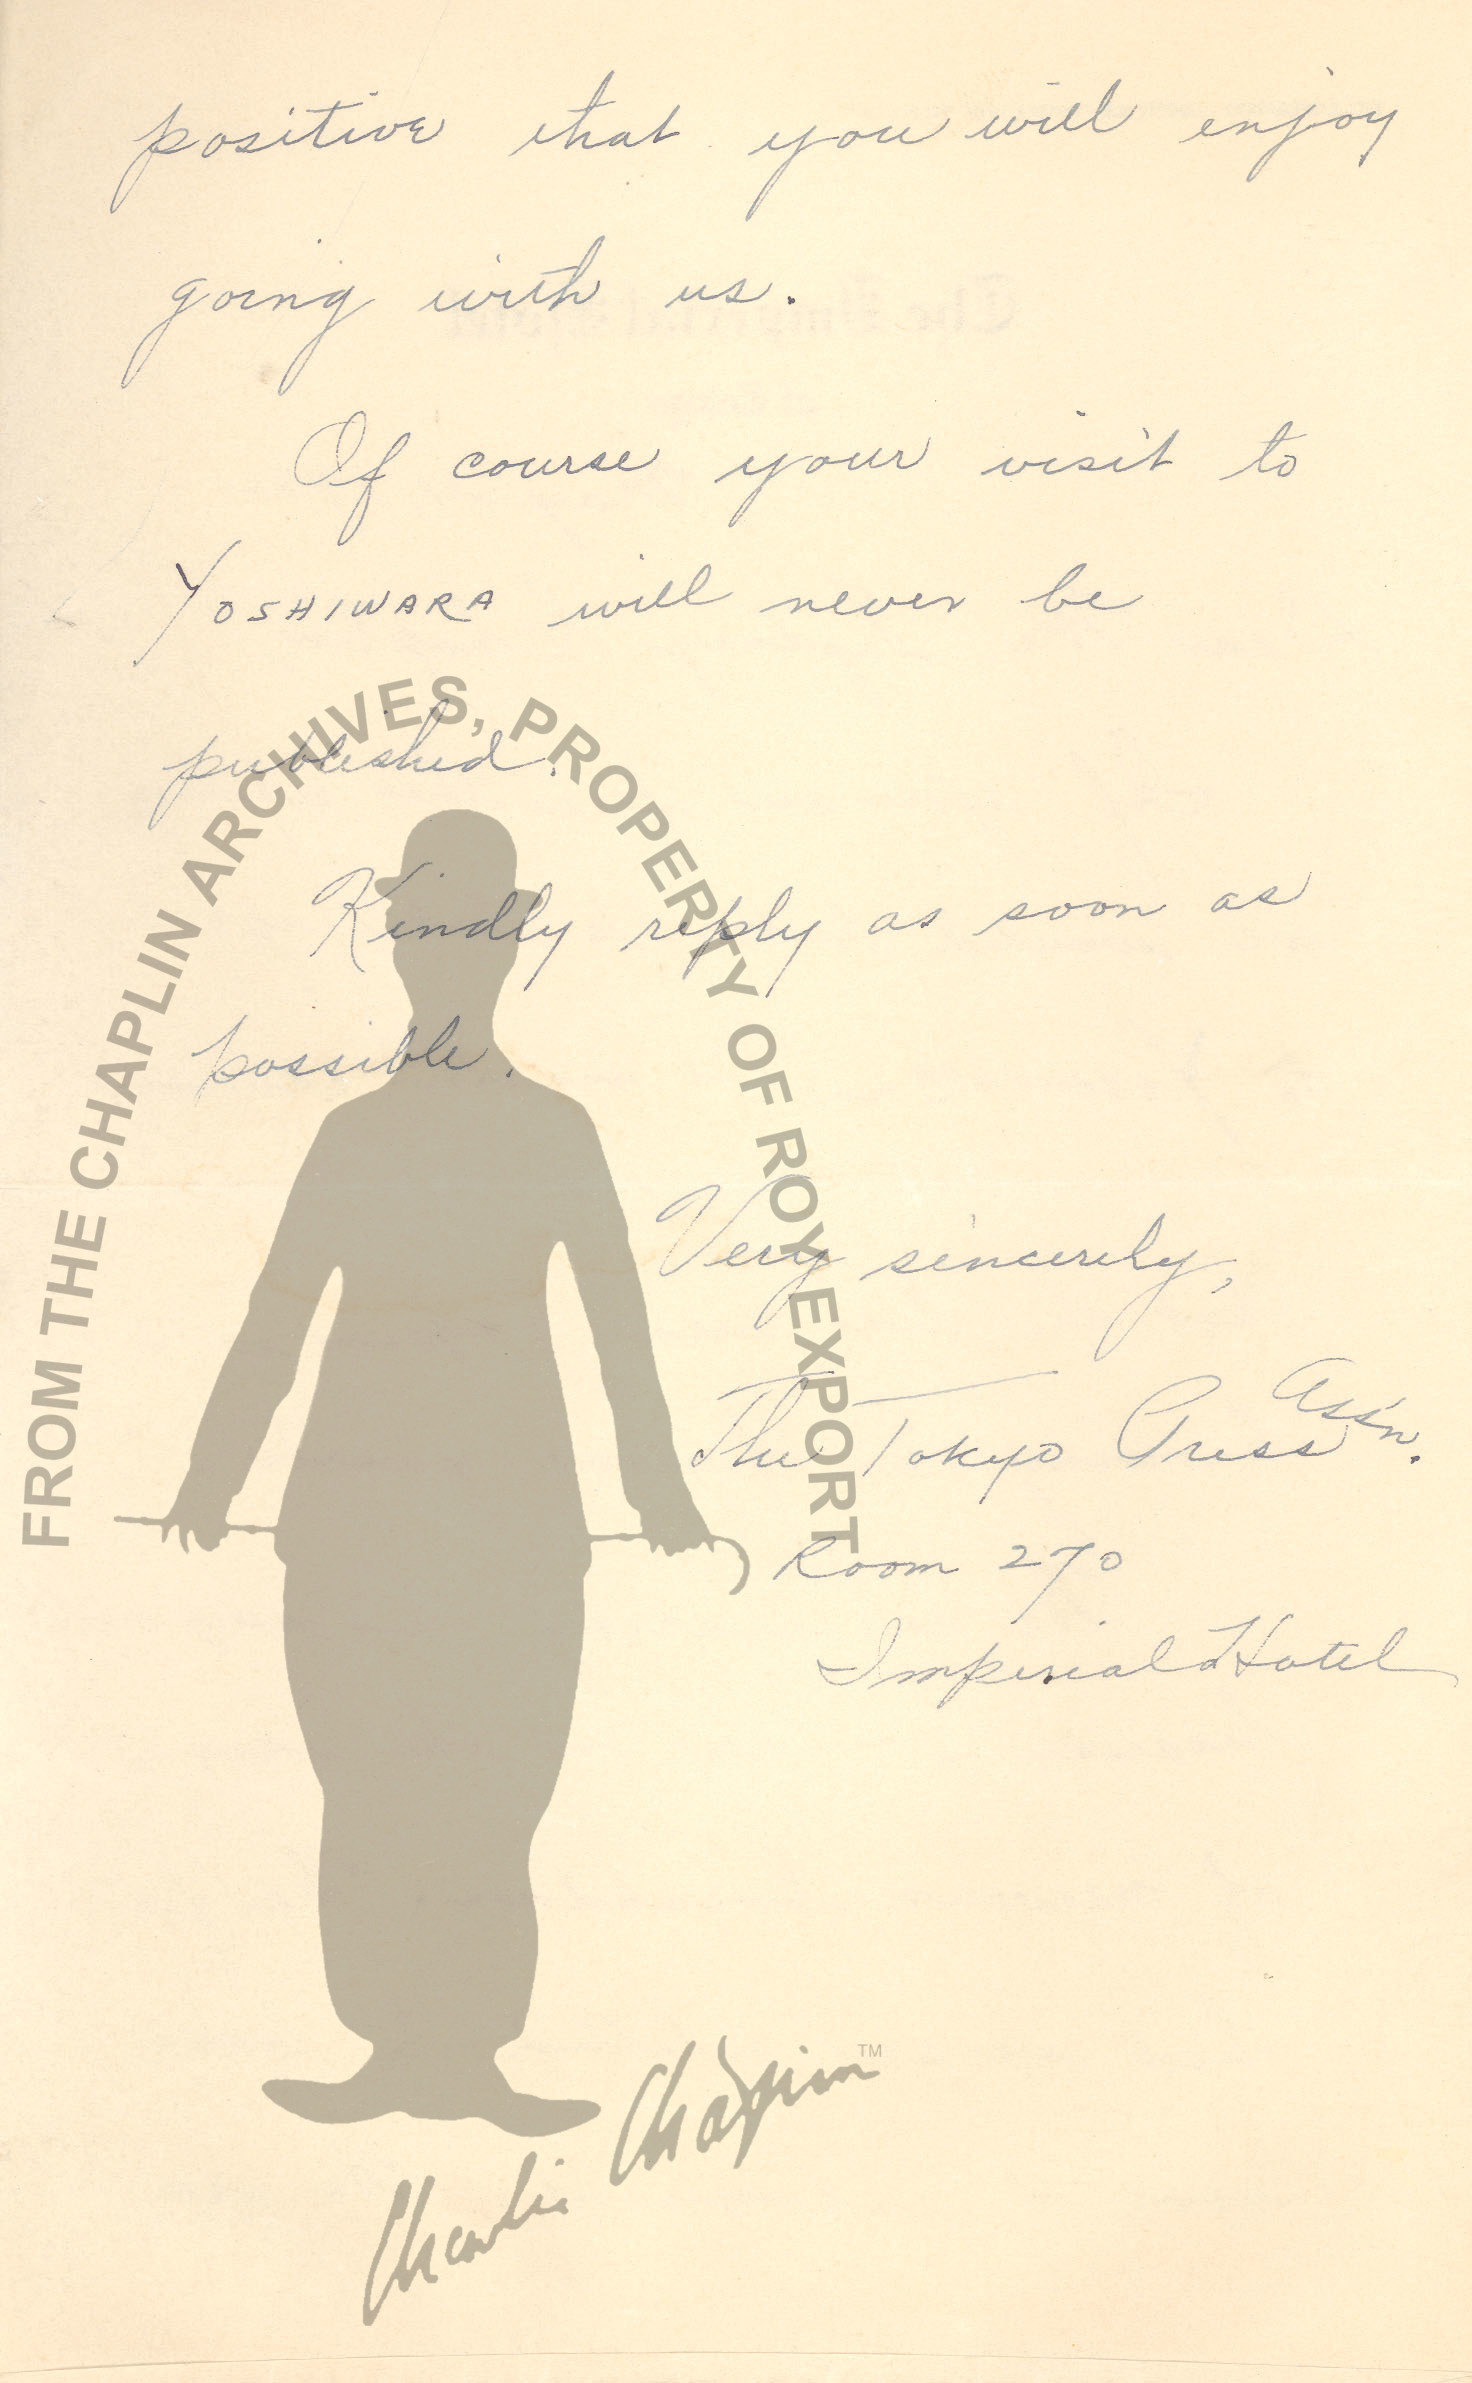 positive that you will enjoy
going with us.
Of course your visit to
YOSHIWARA will never be
published.
Kindly reply as soon as
possible.
Very sincerely,
The Tokyo Press Ass'n.
Room 270
Imperial Hotel
FROM THE CHAPLIN ARCHIVES, PROPERTY OF ROY EXPORT
Charlie Chaplin™